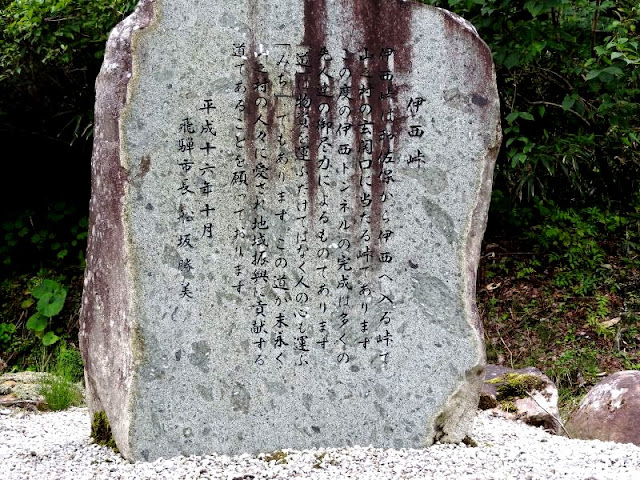 伊西峠
伊西峠は和佐保から伊西へ入る峠で
山之村の玄関口に当たる峠であります
この度の伊西トンネルの完成は多くの
先人達の御尽力によるものであります
道は物を運ぶだけではなく人の心も運ぶ
「みち」でもあります この道が末永く
山之村の人々に愛され地域振興に貢献する
道であることを願っております
平成十六年十月
飛騨市長 船坂勝美